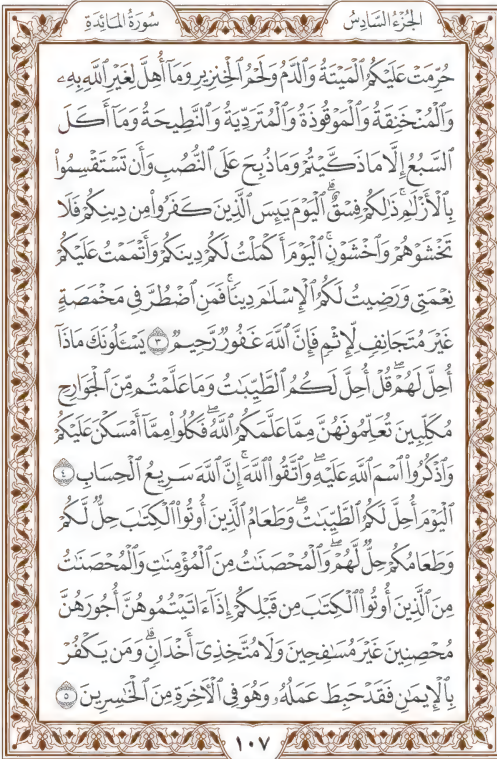 الجُزءُ السَّادِسُ
سُورَةُ المَائِدَةِ
حُرِّمَتۡ عَلَيۡكُمُ ٱلۡمَيۡتَةُ وَٱلدَّمُ وَلَحۡمُ ٱلۡخِنزِيرِ وَمَآ أُهِلَّ لِغَيۡرِ ٱللَّهِ بِهِۦ
وَٱلۡمُنۡخَنِقَةُ وَٱلۡمَوۡقُوذَةُ وَٱلۡمُتَرَدِّيَةُ وَٱلنَّطِيحَةُ وَمَآ أَكَلَ
ٱلسَّبُعُ إِلَّا مَا ذَكَّيۡتُمۡ وَمَا ذُبِحَ عَلَى ٱلنُّصُبِ وَأَن تَسۡتَقۡسِمُواْ
بِٱلۡأَزۡلَٰمِۚ ذَٰلِكُمۡ فِسۡقٌۗ ٱلۡيَوۡمَ يَئِسَ ٱلَّذِينَ كَفَرُواْ مِن دِينِكُمۡ فَلَا
تَخۡشَوۡهُمۡ وَٱخۡشَوۡنِۚ ٱلۡيَوۡمَ أَكۡمَلۡتُ لَكُمۡ دِينَكُمۡ وَأَتۡمَمۡتُ عَلَيۡكُمۡ
نِعۡمَتِي وَرَضِيتُ لَكُمُ ٱلۡإِسۡلَٰمَ دِينٗاۚ فَمَنِ ٱضۡطُرَّ فِي مَخۡمَصَةٍ
غَيۡرَ مُتَجَانِفٖ لِّإِثۡمٖ فَإِنَّ ٱللَّهَ غَفُورٞ رَّحِيمٞ ٣ يَسۡـَٔلُونَكَ مَاذَآ
أُحِلَّ لَهُمۡۖ قُلۡ أُحِلَّ لَكُمُ ٱلطَّيِّبَٰتُ وَمَا عَلَّمۡتُم مِّنَ ٱلۡجَوَارِحِ
مُكَلِّبِينَ تُعَلِّمُونَهُنَّ مِمَّا عَلَّمَكُمُ ٱللَّهُۖ فَكُلُواْ مِمَّآ أَمۡسَكۡنَ عَلَيۡكُمۡ
وَٱذۡكُرُواْ ٱسۡمَ ٱللَّهِ عَلَيۡهِۖ وَٱتَّقُواْ ٱللَّهَۚ إِنَّ ٱللَّهَ سَرِيعُ ٱلۡحِسَابِ ٤
ٱلۡيَوۡمَ أُحِلَّ لَكُمُ ٱلطَّيِّبَٰتُۖ وَطَعَامُ ٱلَّذِينَ أُوتُواْ ٱلۡكِتَٰبَ حِلّٞ لَّكُمۡ
وَطَعَامُكُمۡ حِلّٞ لَّهُمۡۖ وَٱلۡمُحۡصَنَٰتُ مِنَ ٱلۡمُؤۡمِنَٰتِ وَٱلۡمُحۡصَنَٰتُ
مِنَ ٱلَّذِينَ أُوتُواْ ٱلۡكِتَٰبَ مِن قَبۡلِكُمۡ إِذَآ ءَاتَيۡتُمُوهُنَّ أُجُورَهُنَّ
مُحۡصِنِينَ غَيۡرَ مُسَٰفِحِينَ وَلَا مُتَّخِذِيٓ أَخۡدَانٖۗ وَمَن يَكۡفُرۡ
بِٱلۡإِيمَٰنِ فَقَدۡ حَبِطَ عَمَلُهُۥ وَهُوَ فِي ٱلۡأٓخِرَةِ مِنَ ٱلۡخَٰسِرِينَ ٥
١٠٧